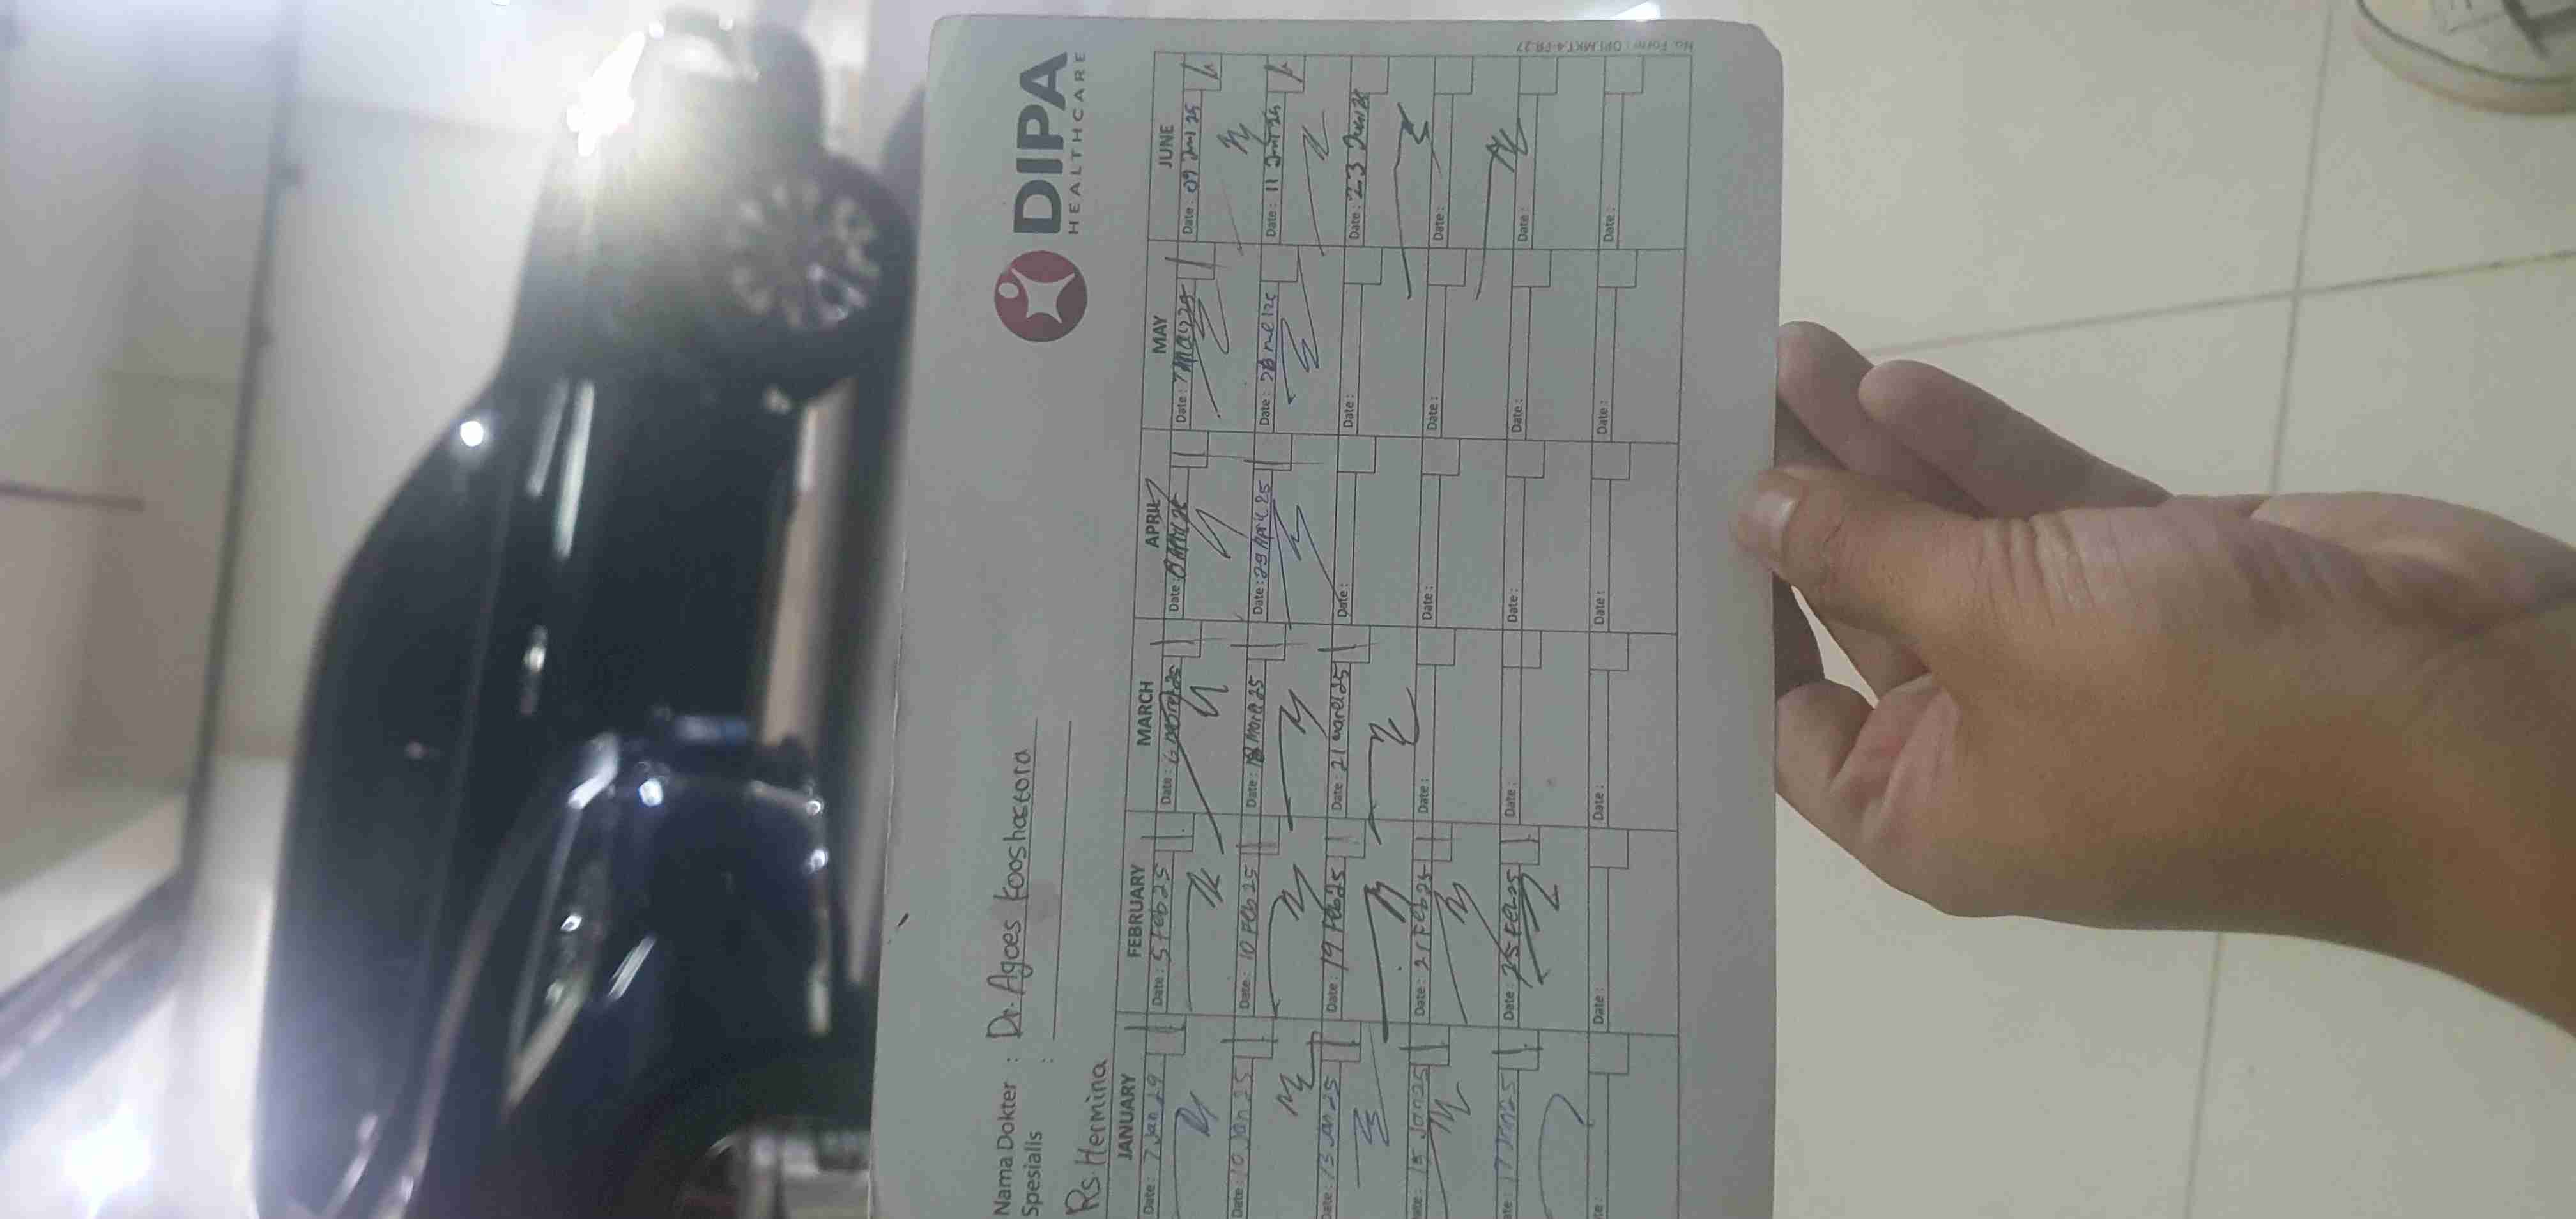 DIPA
HEALTHCARE
Nama Dokter : Dr. Agoes Kooshastoro
Spesialis :
Rs. Hermina
JANUARY FEBRUARY MARCH APRIL MAY JUNE
Date: 7 Jan 29 Date: 5 Feb 25 Date: Date: Date: 7 May 25 Date: 09 Jun 25
Date: 10 Jan 25 Date: 10 Feb 25 Date: 18 Maret 25 Date: 29 April 25 Date: Date: 11 Jun 25
Date: 13 Jan 25 Date: 19 Feb 25 Date: 21 Maret 25 Date: Date: Date: 23 Juni 25
ate: 15 Jan 25 Date: 21 Feb 25 Date: Date: Date: Date:
te: 17 Jan 25 Date: 25 Feb 25 Date: Date: Date: Date:
te: Date: Date: Date: Date: Date:
No. Form : DPI.MKT.4-FR-27